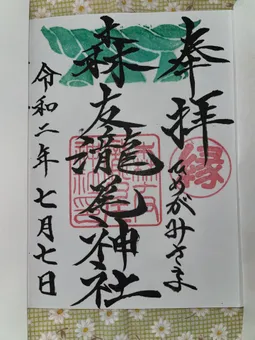 奉拝
縁
ひめがみさま
森友瀧尾神社
令和二年七月七日